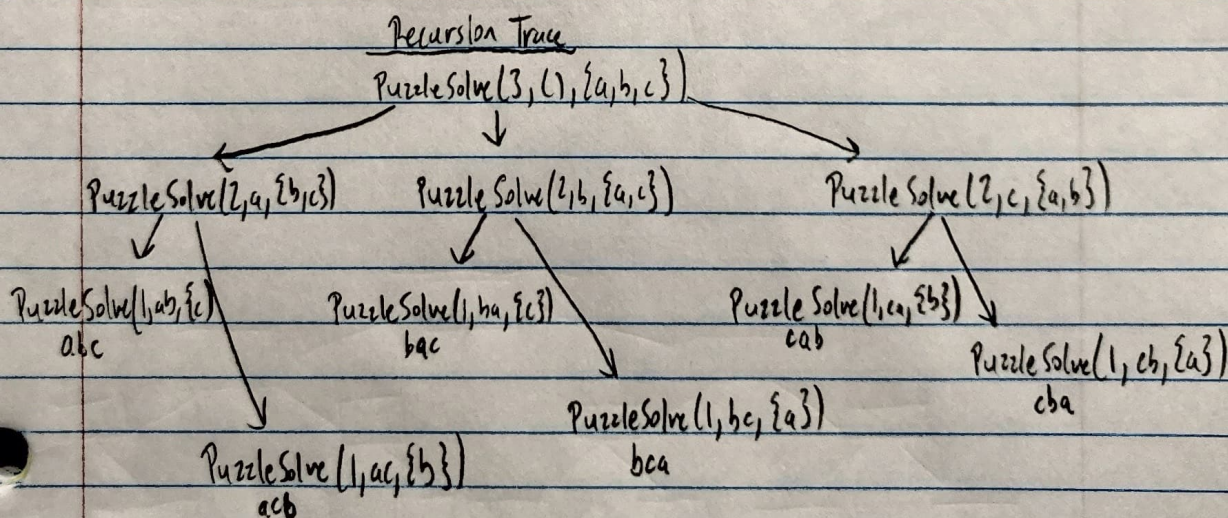 Recursion Trace
PuzzleSolve(3, (), {a,b,c})
PuzzleSolve(2,a,{b,c}) PuzzleSolve(2,b,{a,c}) PuzzleSolve(2,c,{a,b})
PuzzleSolve(1,ab,{c) PuzzleSolve(1,ba,{c}) PuzzleSolve(1,ca,{b})
abc bac cab
PuzzleSolve(1,cb,{a})
cba
PuzzleSolve(1,bc,{a})
bca
PuzzleSolve(1,ac,{b})
acb